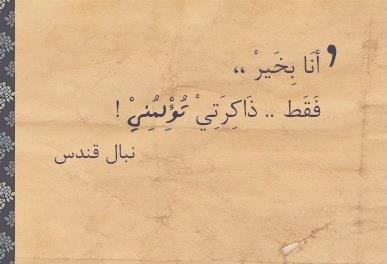 ❜ أنَا بِخَيرْ ،،
فَقَط .. ذَاكِرَتِيْ تُؤلِمُنِيْ !
نبال قندس